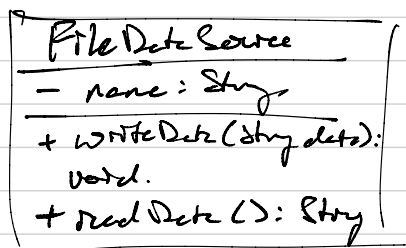 FileDataSource
- name: String
+ writeData(String data):
void.
+ readData(): String